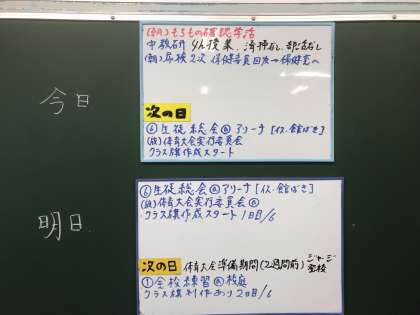 今日
(朝)もちもの確認学活
中教研 4h授業、清掃なし、部活なし
(朝)尿検2次 保健委員回収→保健室へ
次の日
⑥生徒総会@アリーナ[イス・館ばき]
(放)体育大会実行委員会
クラス旗作成スタート
明日
⑥生徒総会@アリーナ[イス・館ばき]
(放)体育大会実行委員会@
クラス旗作成スタート1日目/6
次の日 体育大会準備期間(2週間前) ジャージ登校
①全校練習@校庭
クラス旗制作あり2日目/6